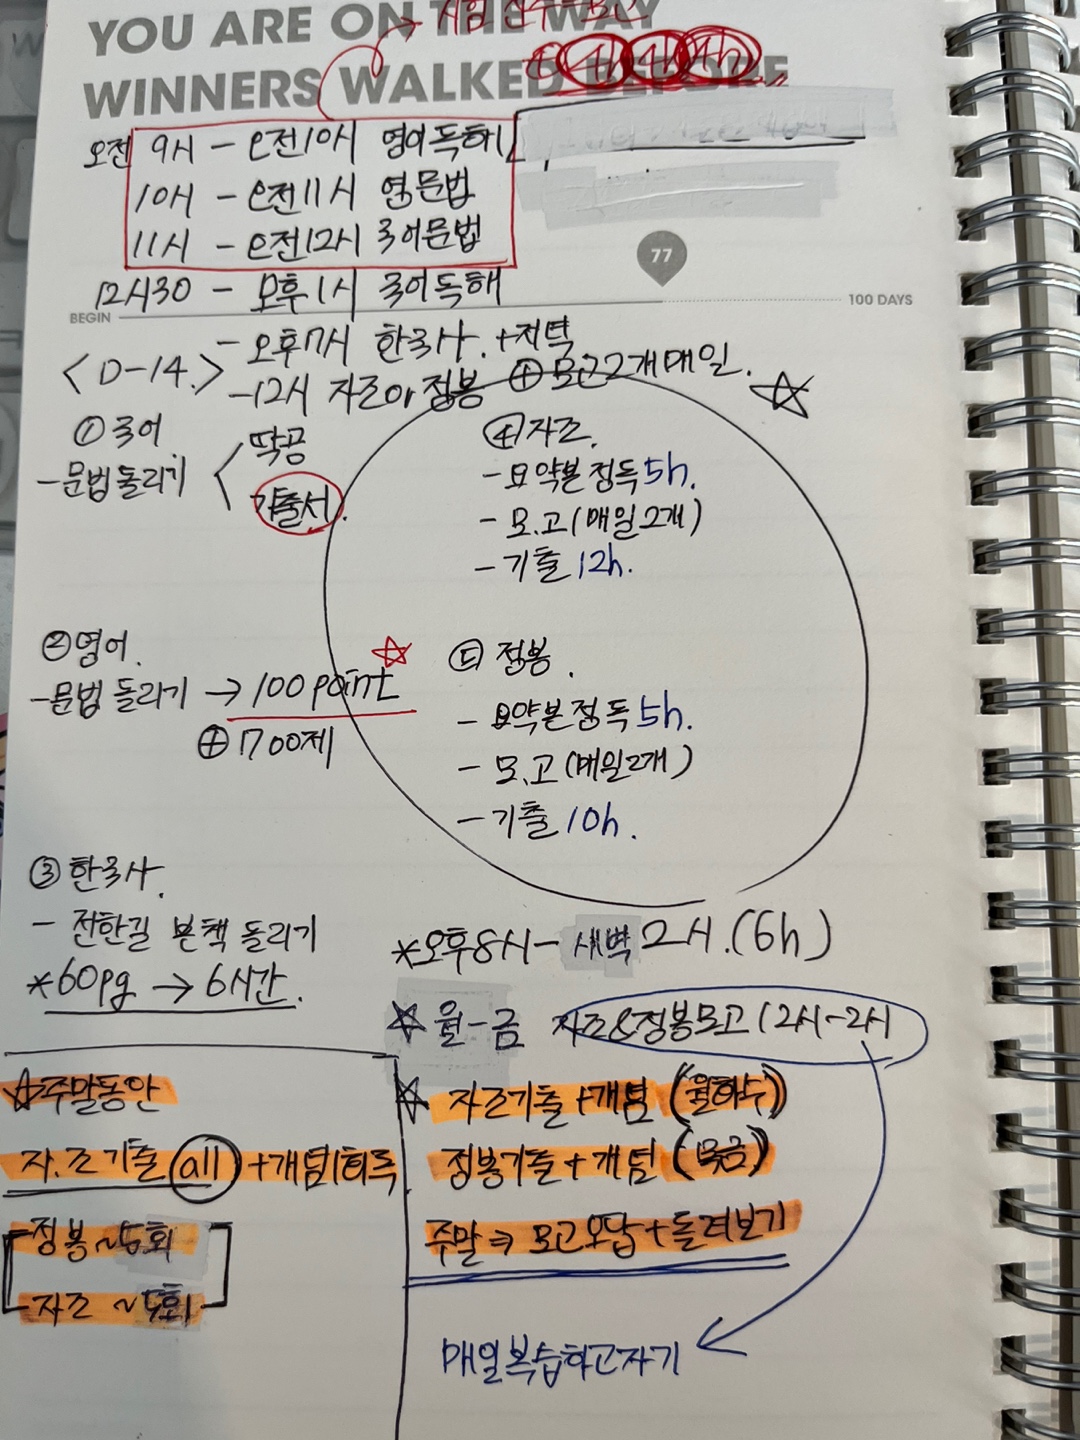 YOU ARE ON THE WAY
WINNERS WALKED BEFORE
오전 9시 - 오전10시 영어독해
10시 - 오전11시 영문법
11시 - 오전12시 국어문법
12시30 - 오후1시 국어독해
77
BEGIN
100 DAYS
- 오후7시 한국사 +저녁
<D-14.>
-12시 자조or정봉 ⊕모고2개매일.
① 국어
-문법돌리기
딱공
기출서.
④자조.
-요약본정독5h.
-모.고(매일2개)
-기출 12h.
②영어.
-문법 돌리기 → 100 point
⊕ 700제
⑤ 정봉.
-요약본정독5h.
-모.고(매일2개)
-기출 10h.
③한국사.
- 전한길 본책 돌리기
*60pg → 6시간.
*오후8시 - 새벽 2시.(6h)
☆ 월-금 자조&정봉모고 12시-2시
☆주말동안
자.조기출 all +개념1회독
-정봉 ~5회
-자조 ~5회
☆ 자조기출+개념 (월화수)
정봉기출+개념 (목금)
주말⇒모고오답+돌려보기
매일복습하고자기